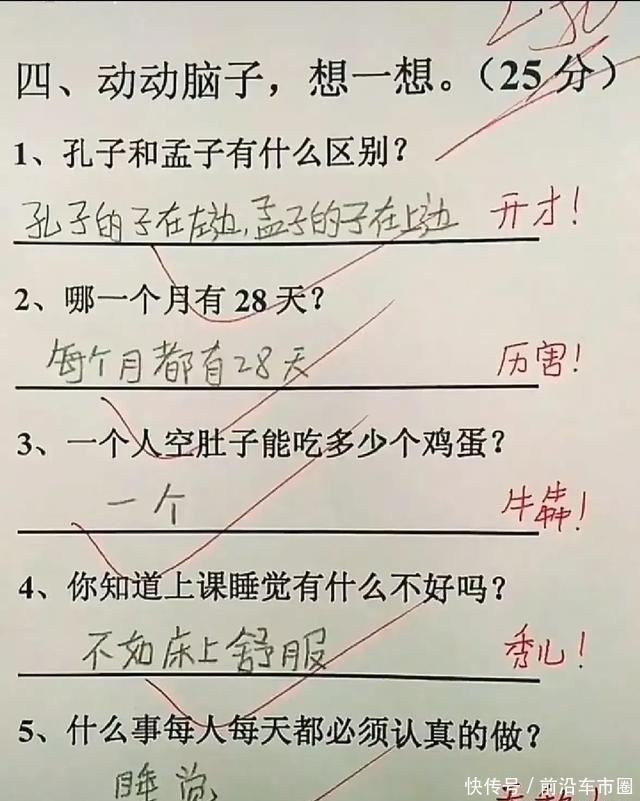 四、动动脑子，想一想。（25分）
1、孔子和孟子有什么区别？
孔子的子在左边,孟子的子在上边 开才！
2、哪一个月有28天？
每个月都有28天 历害！
3、一个人空肚子能吃多少个鸡蛋？
一个 牛犇！
4、你知道上课睡觉有什么不好吗？
不如床上舒服 秀儿！
5、什么事每人每天都必须认真的做？
睡觉
快传号／前沿车市圈